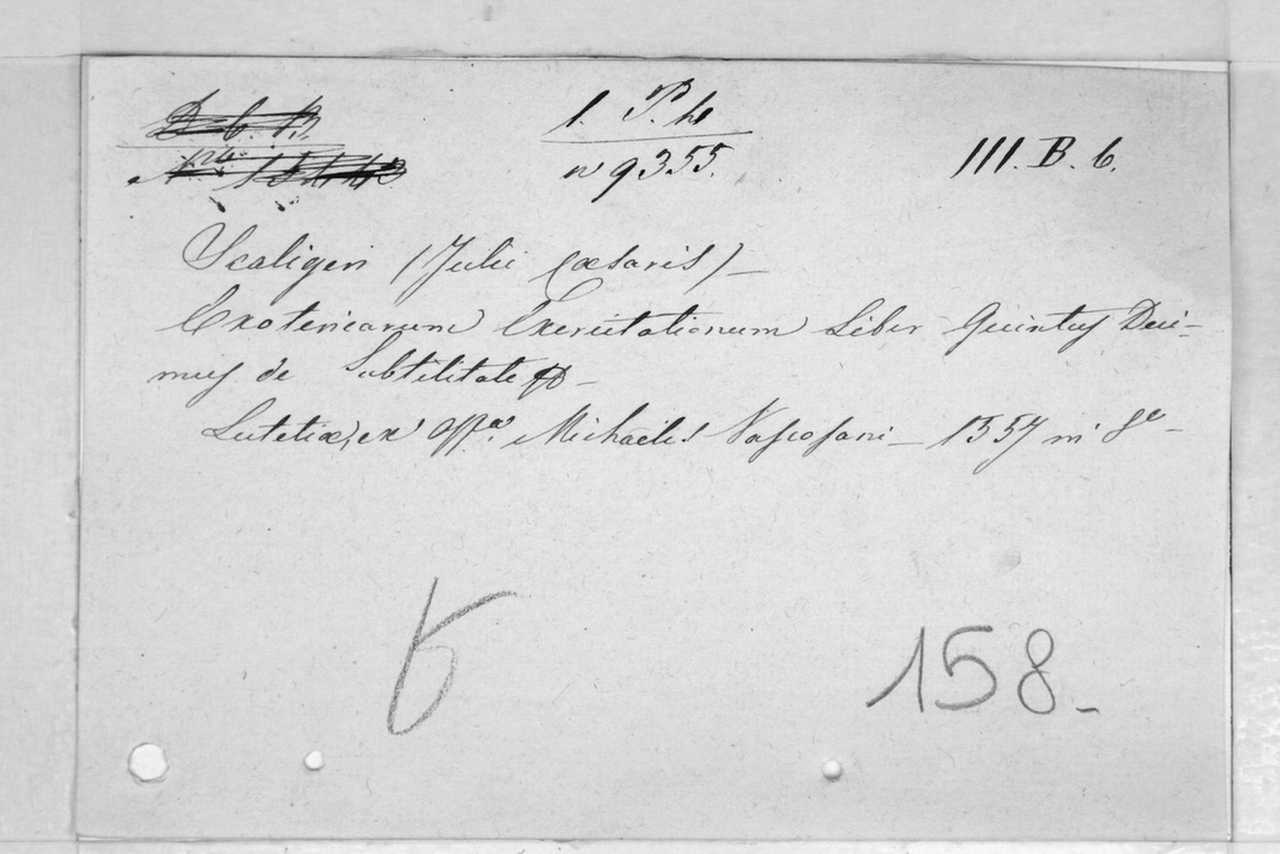 1. P. h
III. B. 6.
nº 9355.
Scaligeri (Julii Cæsaris) —
Exotericarum Exercitationum Liber Quintus Deci-
mus de Subtilitate —
Lutetiæ, ex offª. Michaelis Vascosani — 1557 in 8º —
6
158 -